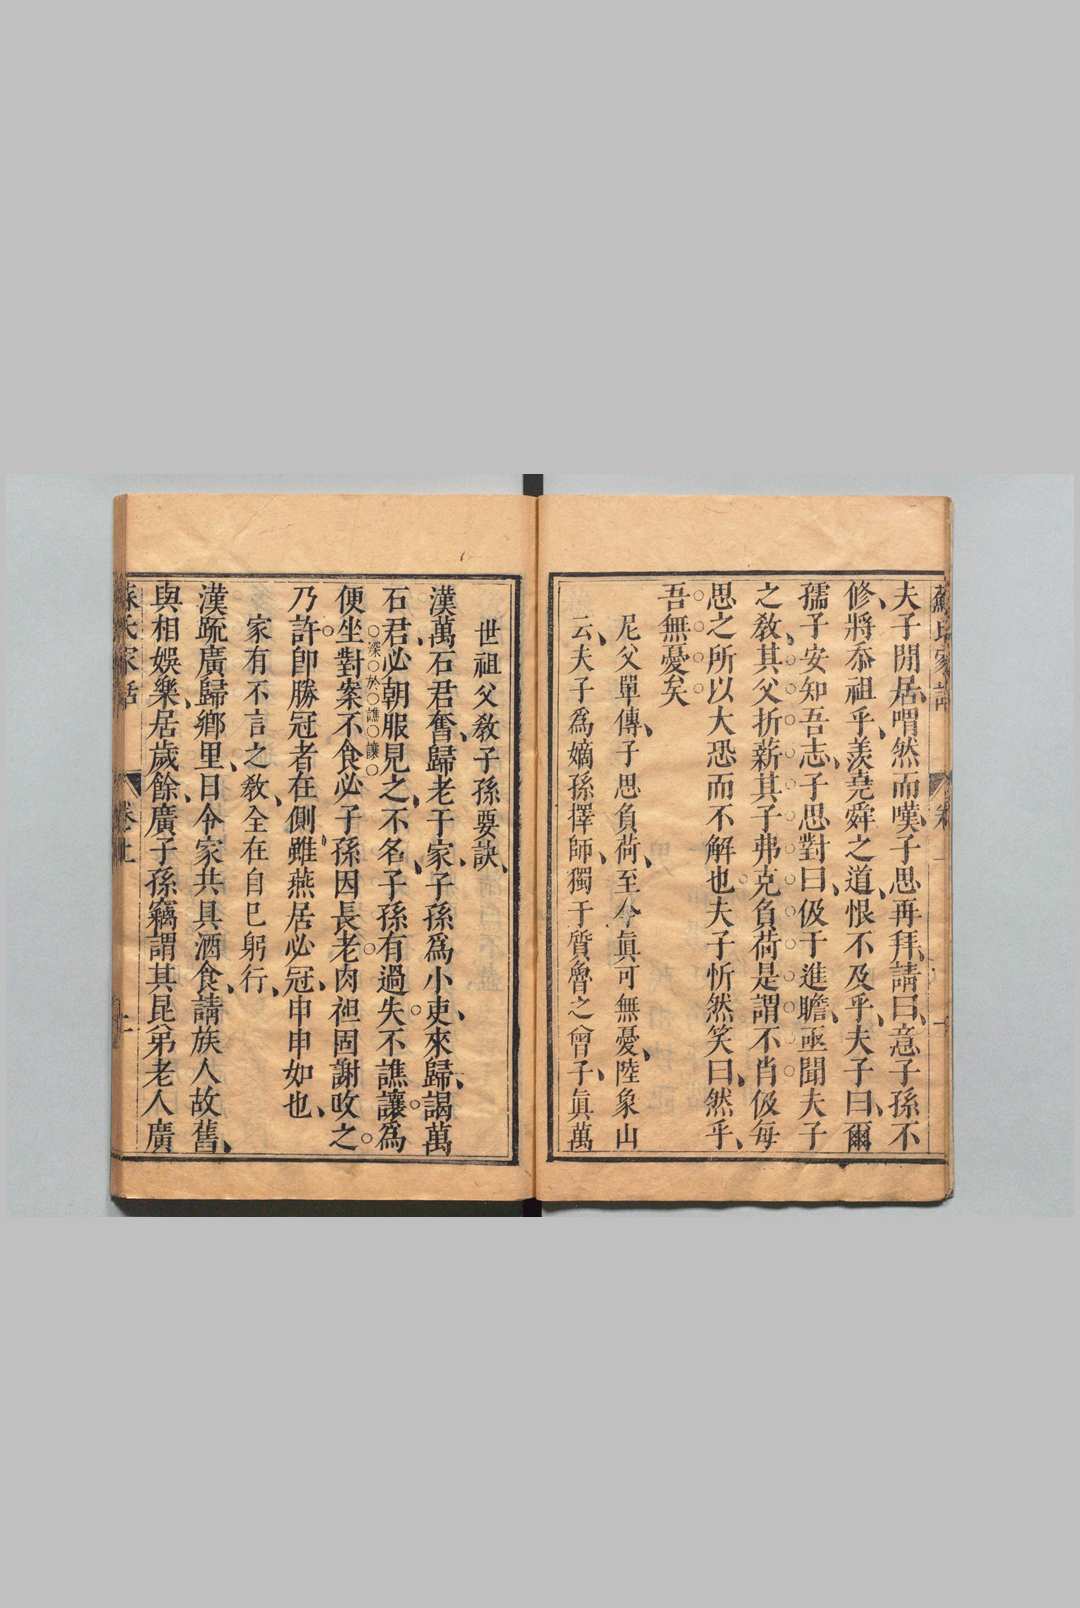 夫子閒居喟然而嘆子思再拜請曰意子孫不
修將忝祖乎羨堯舜之道恨不及乎夫子曰爾
孺子安知吾志子思對曰伋于進瞻亟聞夫子
之教其父折薪其子弗克負荷是謂不肖伋每
思之所以大恐而不解也夫子忻然笑曰然乎
吾無憂矣
尼父單傳子思負荷至今眞可無憂陸象山
云夫子爲嫡孫擇師獨于質魯之曾子眞萬
世祖父教子孫要訣
漢萬石君奮歸老于家子孫爲小吏來歸謁萬
石君必朝服見之不名子孫有過失不譙讓爲
深於譙讓
便坐對案不食必子孫因長老肉袒固謝攺之
乃許卽勝冠者在側雖燕居必冠申申如也
家有不言之教全在自已躬行
漢疏廣歸鄉里日令家共具酒食請族人故舊
與相娛樂居歲餘廣子孫竊謂其昆弟老人廣
蘇氏家語
卷上
十一